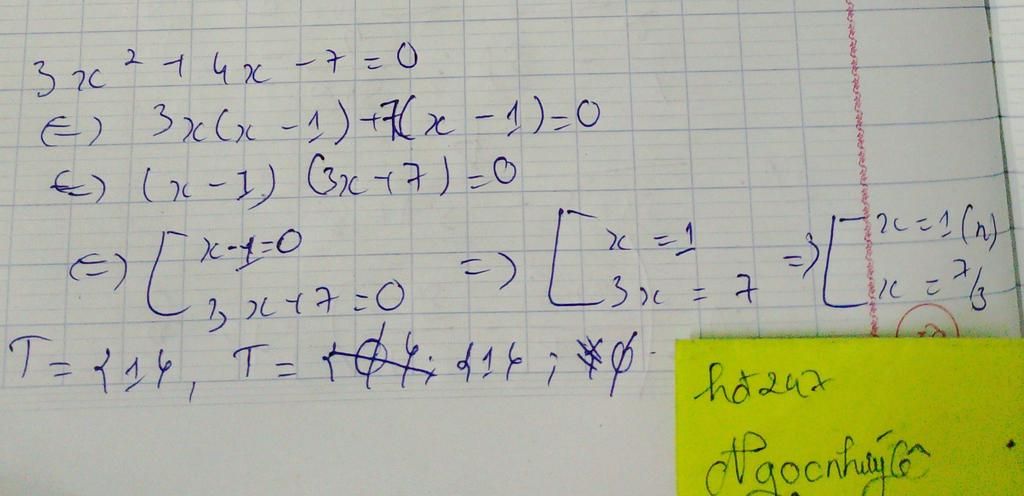 3x² + 4x - 7 = 0
⇔) 3x(x - 1) + 7(x - 1) = 0
⇔) (x - 1) (3x + 7) = 0
⇔) [ x - 1 = 0 => [ x = 1 => [ x = 1 (n)
3x + 7 = 0 3x = 7 x = 7/3
T = {1}, T = {1} ; ∅
hd247
Ngocnhuý